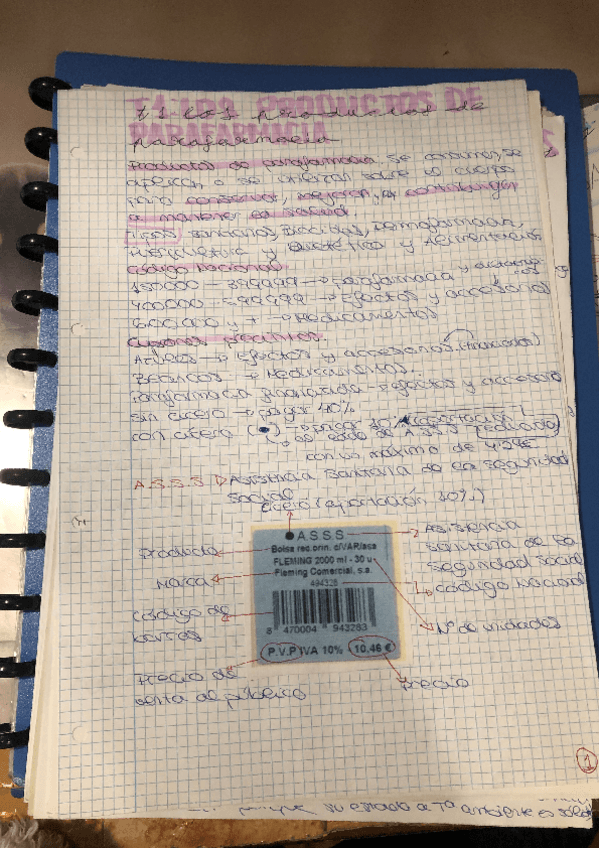 T1 LOS PRODUCTOS DE
PARAFARMACIA
Productos de parafarmacia se consumen, se
aplican o se sobre el cuerpo
para conservar, mejorar, contribuyen
a mantener la salud.
Tipos: Sanitarios, Biocidas, Dermofarmacia,
y y Alimentación
Código Nacional
150000 - 399999 → Parafarmacia y
400000 - 599999 → Efectos y accesorios
600000 y + → Medicamentos
Cupones precintos.
Azules → Efectos y accesorios. (financiados)
Blancos → Medicamentos.
Parafarmacia financiada - efectos y accesorios
sin cícero → pagar 40%
con cícero (●) → pagar 10% (aportación
al lado de A.S.S.S reducida)
con un máximo de 4.24€
A.S.S.S Asistencia Sanitaria de la Seguridad
Social
cícero (aportación 10%)
● A.S.S.S
Bolsa rec.orin. c/VAR/asa
FLEMING 2000 ml - 30 u.
Fleming Comercial, s.a.
494328
8 470004 943283
P.V.P IVA 10% 10,46 €
Producto
Marca
Código de
barras
Precio de
venta al público
Asistencia
Sanitaria de la
Seguridad Social
Código Nacional
Nº de unidades
Precio
1
porque su estado a Tª ambiente es